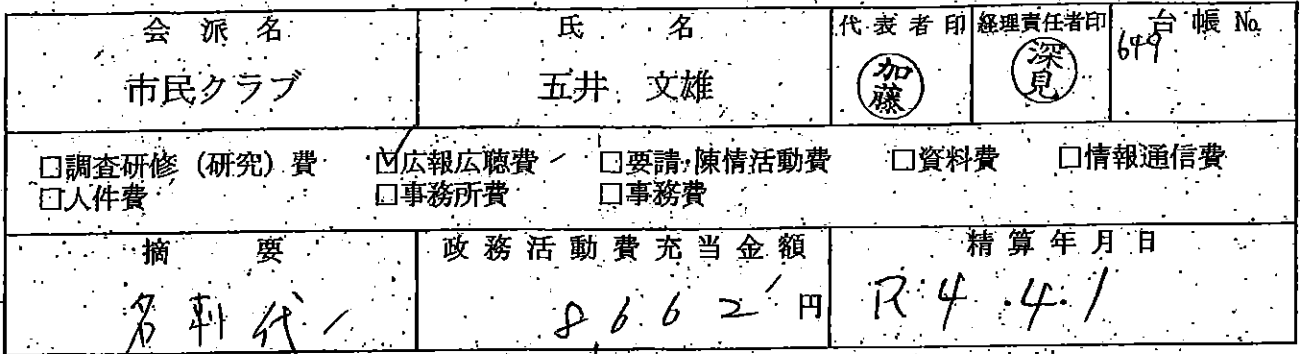 会派名 氏名 代表者印 経理責任者印 台帳No.
市民クラブ 五井 文雄 加藤 深見 649
□調査研修（研究）費 ☑広報広聴費 □要請・陳情活動費 □資料費 □情報通信費
□人件費 □事務所費 □事務費
摘要 政務活動費充当金額 精算年月日
名刺代 8662円 R4.4.1